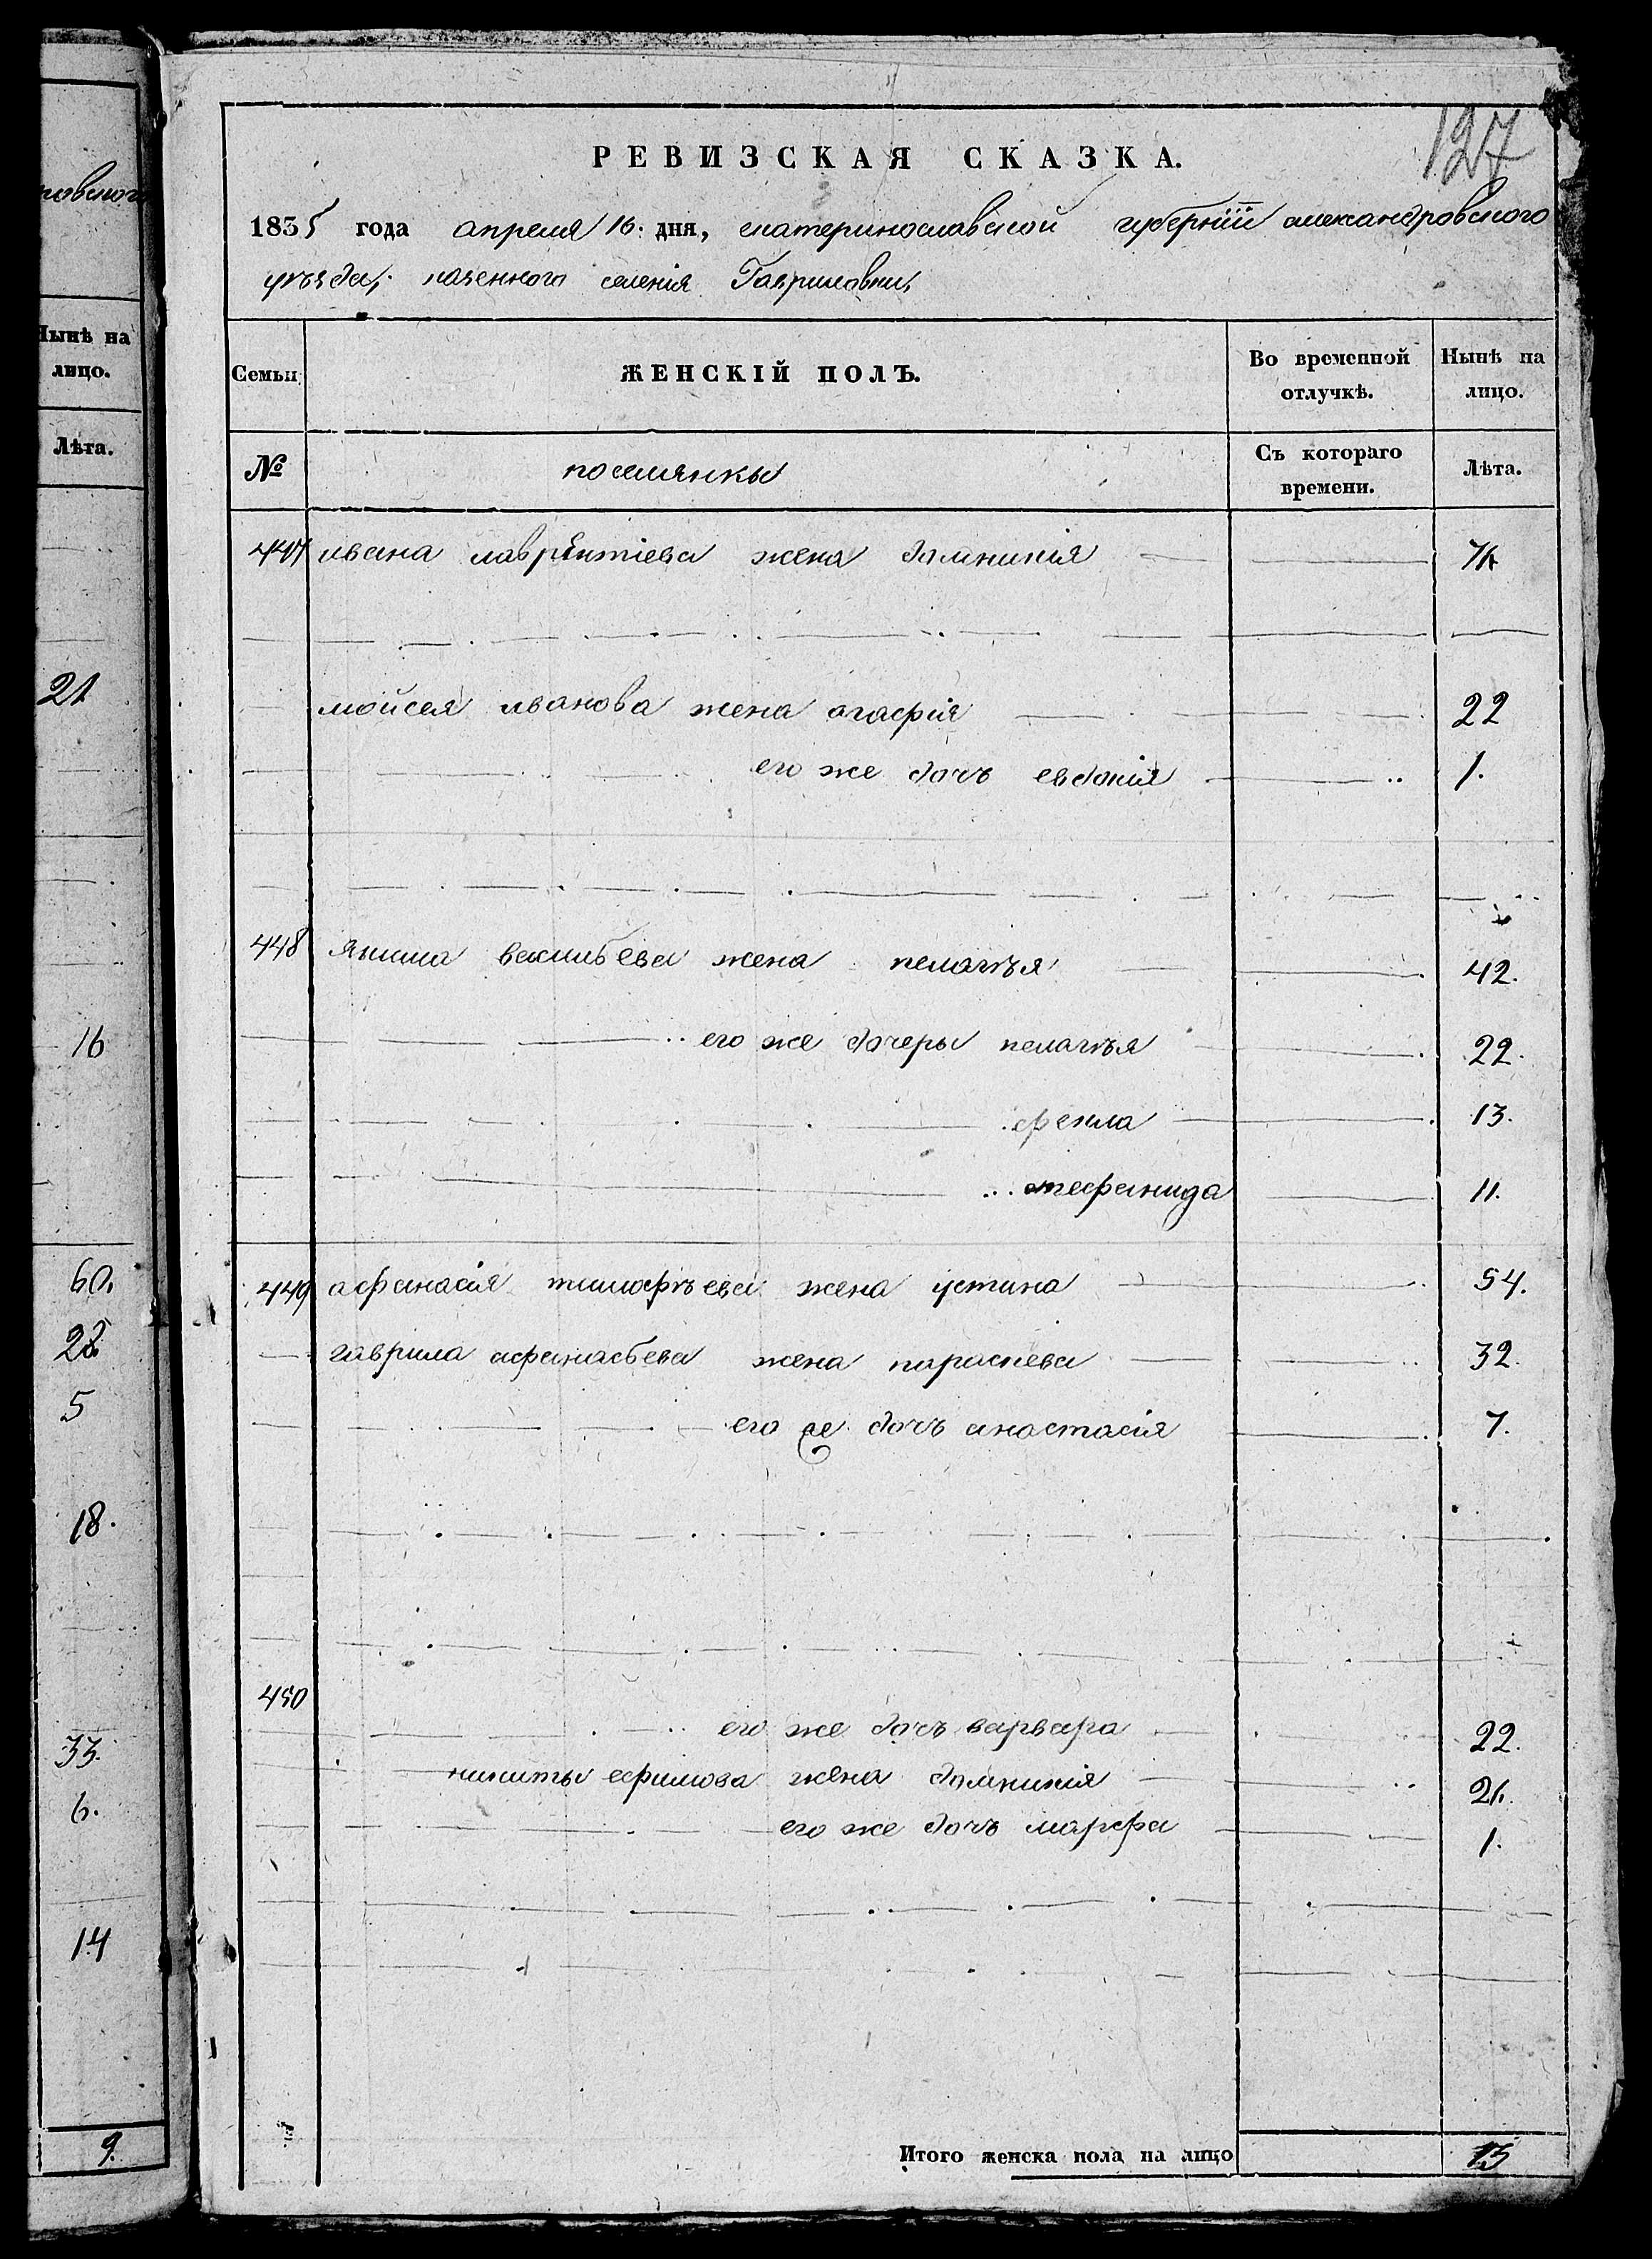 повского
Нынѣ на
лицо.
Лѣта.
21
16
60.
5
18.
33.
6.
14
9.
127
РЕВИЗСКАЯ СКАЗКА.
1835 года апреля 16: дня, екатеринославской губерніи александровского
уѣзда, казенного селенія Гавриловки,
Семьи ЖЕНСКІЙ ПОЛЪ. Во временной отлучкѣ. Нынѣ на лицо.
№ поселянкы Съ котораго времени. Лѣта.
447 ивана лаврентіева жена домникія
мойсея иванова жена агафія 22
его же дочь евдокія 1.
448 якима васильева жена пелагѣя 42.
его же дочеры пелагѣя 22.
фекла 13.
стефанида 11.
449 афанасія тимофѣева жена устина 54.
гаврила афанасьева жена параскева 32.
его же дочь анастасія 7.
450
его же дочь варвара 22.
никиты ефимова жена домникія 21.
его же дочь марфа 1.
Итого женска пола на лицо 13